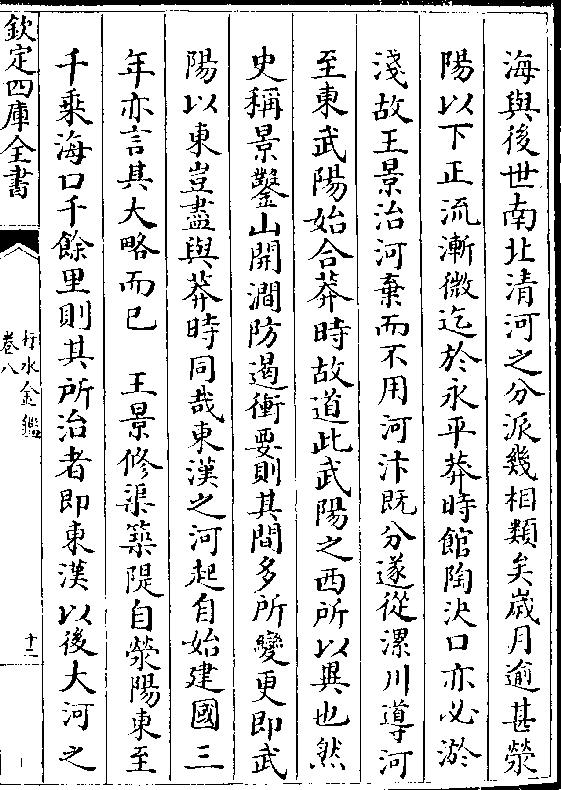 海與後世南北清河之分派幾相類矣歲月逾甚滎
陽以下正流漸微迄於永平莽時館陶決口亦必淤
淺故王景治河棄而不用河汴既分遂從漯川導河
至東武陽始合莽時故道此武陽之西所以異也然
史稱景鑿山開澗防遏衝要則其間多所變更即武
陽以東豈盡與莽時同哉東漢之河起自始建國三
年亦言其大略而已　王景修渠築隄自滎陽東至
千乘海口千餘里則其所治者即東漢以後大河之
欽定四庫全書
行水金鑑
卷八
十二